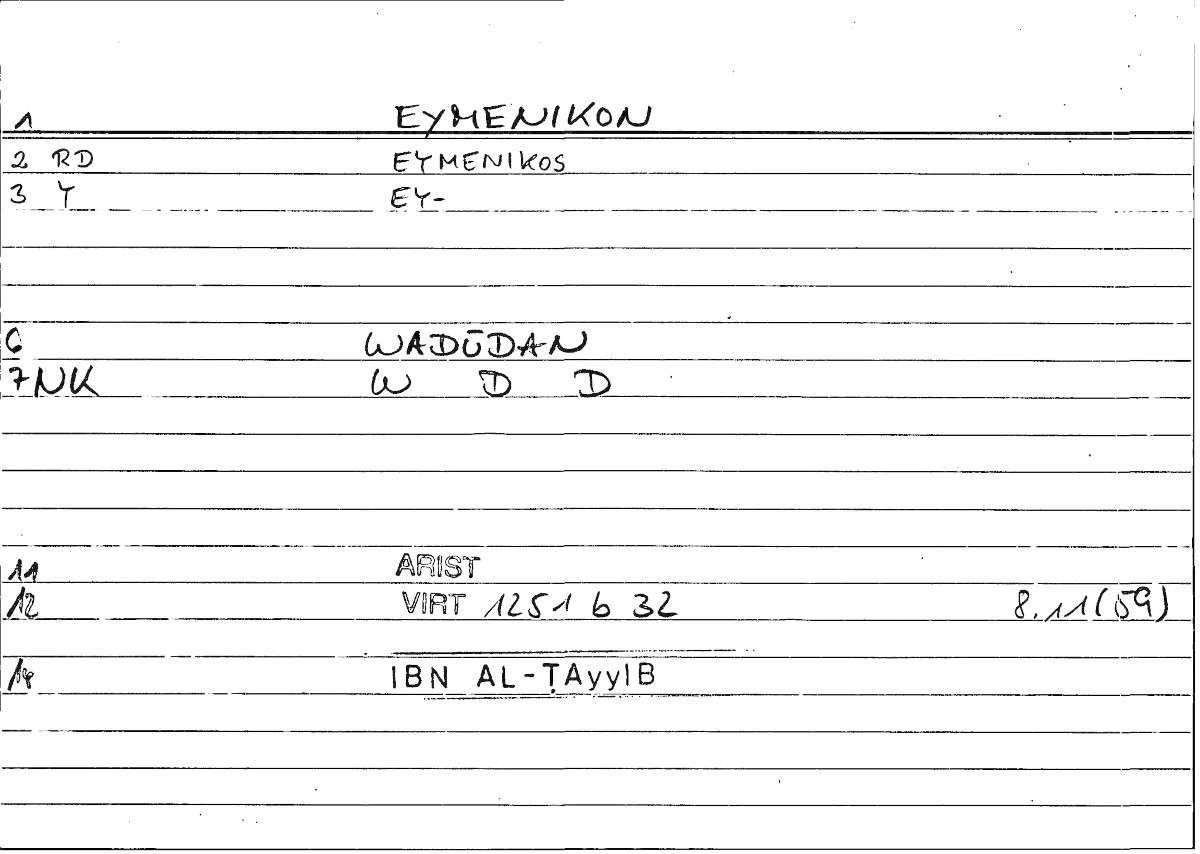 1 EYMENIKON
2 RD EYMENIKOS
3 Y EY-
6 WADŪDAN
7 NK W D D
11 ARIST
12 VIRT 1251 b 32 8.11(59)
14 IBN AL-ṬAyyIB